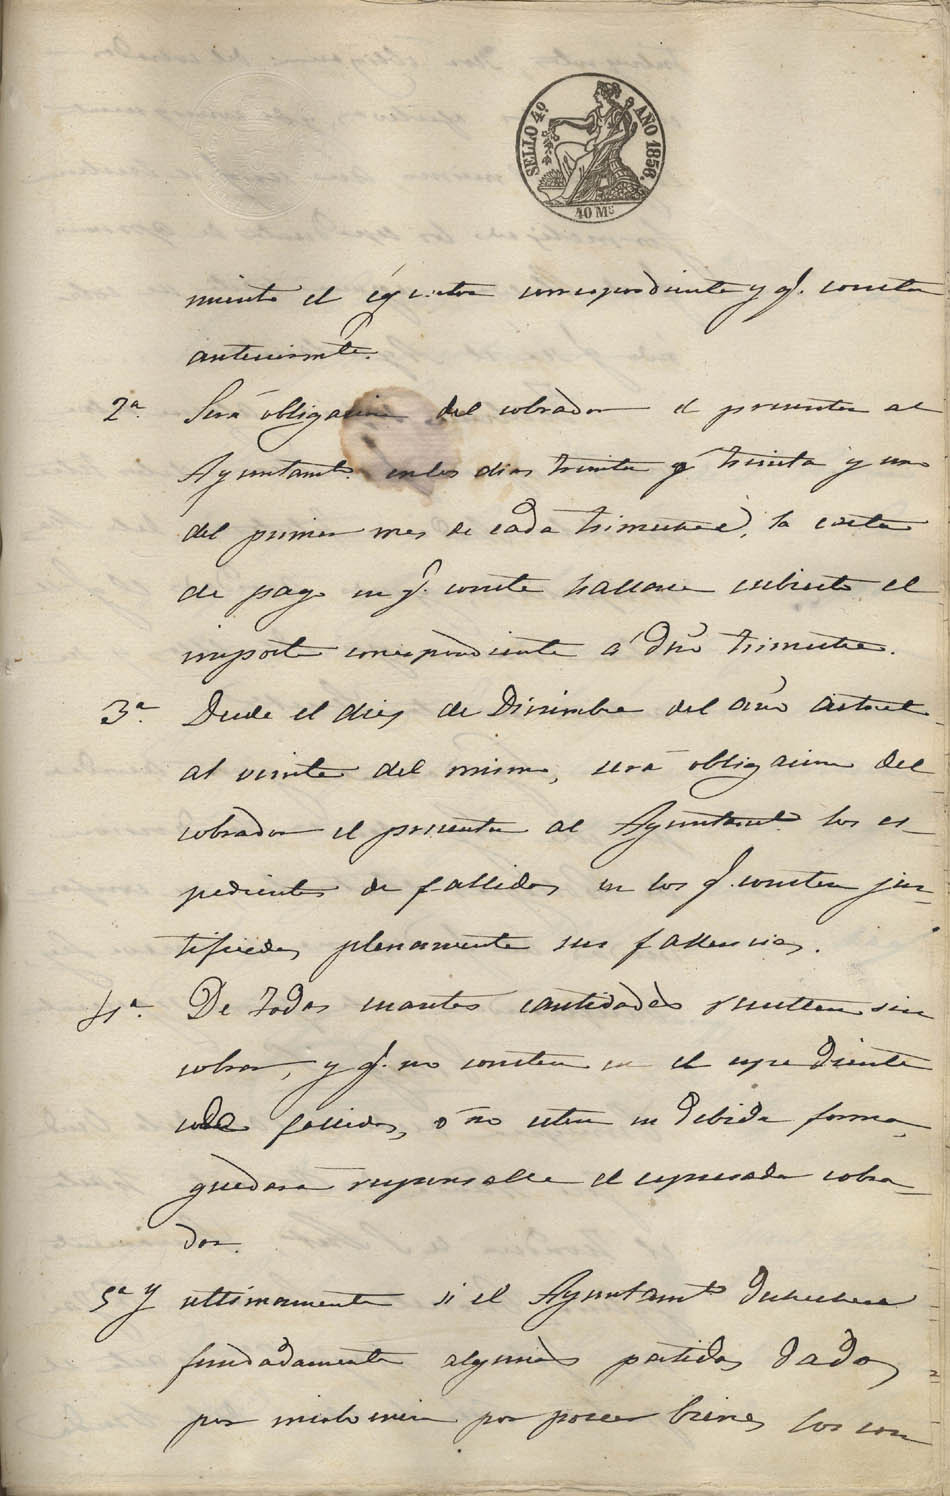 SELLO 4º. AÑO 1856.
40 Ms
miento el correspondiente y q.e consta
anteriormte.
2ª. Será obligacion del cobrador el presentar al
Ayuntamto. en los dias treinta y treinta y uno
del primer mes de cada trimestre, la carta
de pago en q.e conste hallarse cubierto el
importe correspondiente á dho trimestre.
3ª. Desde el diez de Diciembre del año actual
al veinte del mismo, será obligacion del
cobrador el presentar al Ayuntamto los es-
pedientes de fallidos en los q.e consten jus-
tificadas plenamente sus fallencias.
4ª. De todas cuantas cantidades resulten sin
cobrar, y q.e no consten en el espediente
de fallidos, o no esten en debida forma,
quedará responsable el espresado cobra-
dor.
5ª y ultimamente si el Ayuntamto desechase
fundadamente algunas partidas dadas
por insolvencia por poseer bienes los con